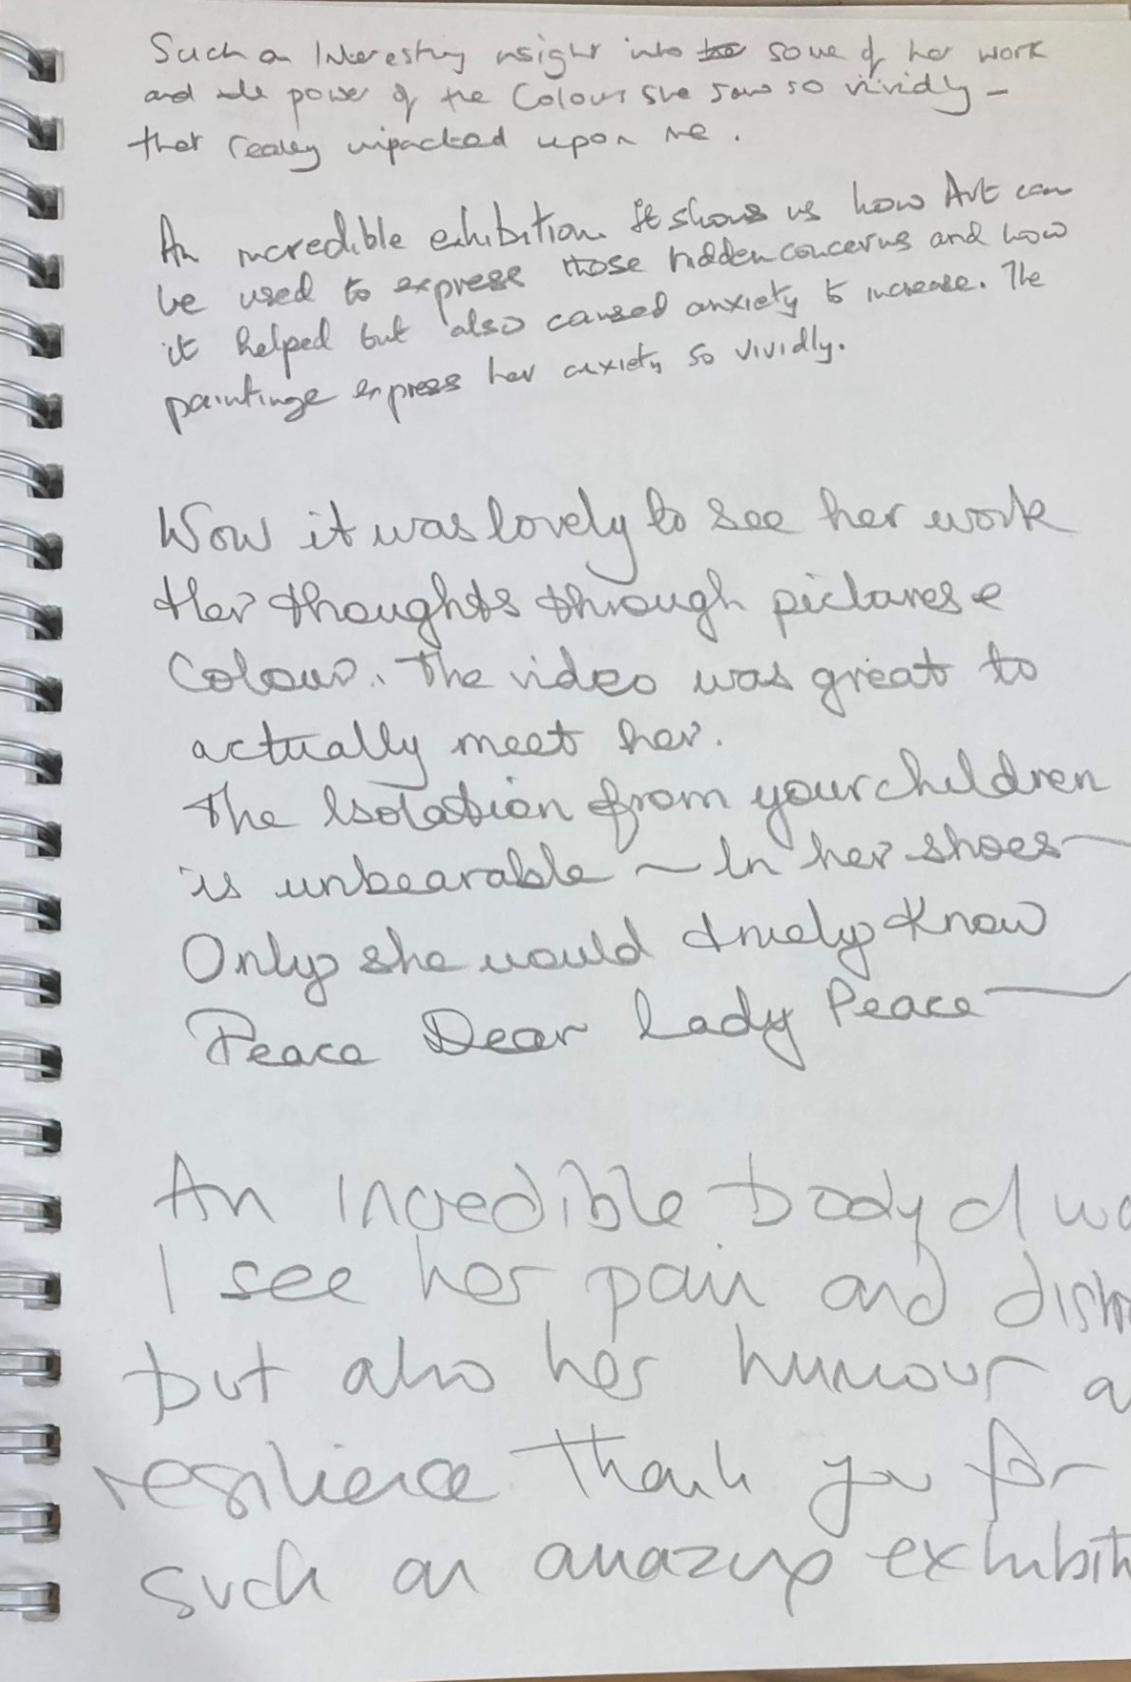 Such an Interesting insight into some of her work
and the power of the Colours she saw so vividly -
that really impacted upon me.
An incredible exhibition. It shows us how Art can
be used to express those hidden concerns and how
it helped but also caused anxiety to increase. The
paintings express her anxiety so vividly.
Wow it was lovely to see her work
Her thoughts through pictures &
Colour. The video was great to
actually meet her.
The Isolation from your children
is unbearable ~ In her shoes —
Only she would truely know
Peace Dear Lady Peace —
An incredible body of
I see her pain and
but also her humour
resilience. Thank you for
such an amazing